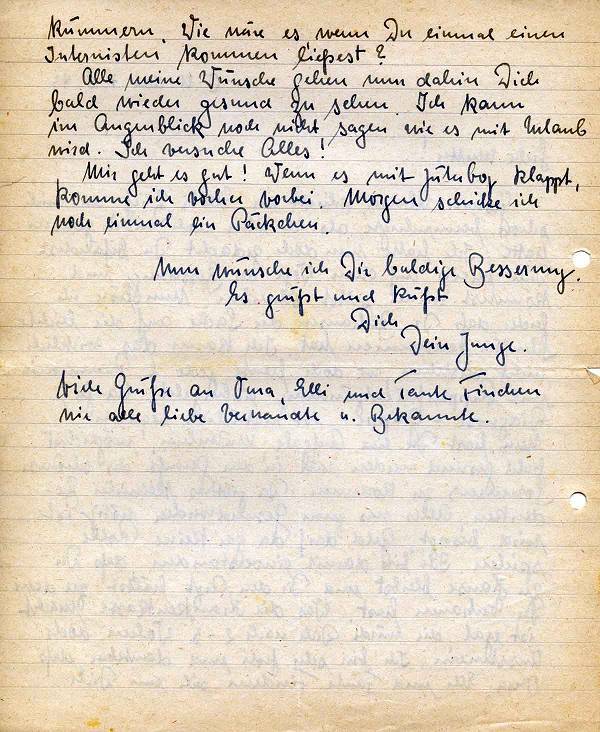 kümmern. Wie wäre es wenn Du einmal einen
Internisten kommen ließest?
Alle meine Wünsche gehen nun dahin Dich
bald wieder gesund zu sehen. Ich kann
im Augenblick noch nicht sagen wie es mit Urlaub
wird. Ich versuche Alles!
Mir geht es gut! Wenn es mit Jüterbog klappt,
komme ich vorher vorbei. Morgen schicke ich
noch einmal ein Päckchen.
Nun wünsche ich Dir baldige Besserung.
Es grüßt und küßt
Dich
Dein Junge.
Viele Grüße an Oma, Elli und Tante Finchen
wie alle liebe Verwandte u. Bekannte.